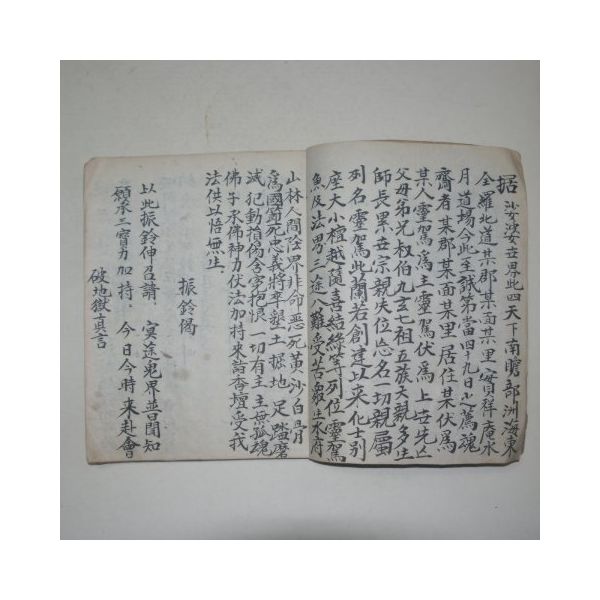 据 娑婆世界此四天下南贍部洲海東
全羅北道某郡某面某里 寶祥菴水
月道場今此至誠第當四十九日之薦魂
齋者某郡某面某里居住某伏爲
某人靈駕爲主靈駕伏爲上世先亡
父母弟兄叔伯九玄七祖五族六親多生
師長累世宗親失位忘名一切親屬
列名靈駕此蘭若創建以來化士別
座大小檀越隨喜結緣等列位靈駕
魚及法男三途八難受苦衆生水府
山林人間陰界非命惡死黃沙白骨
爲國節死忠義將卒墾土掘地足踏磨
滅犯動指傷含寃抱恨一切有主無主孤魂
佛子承佛神力仗法加持來詣香壇受我
法供以悟無生
振鈴偈
以此振鈴伸召請 冥途鬼界普聞知
願承三寶力加持 今日今時來赴會
破地獄眞言